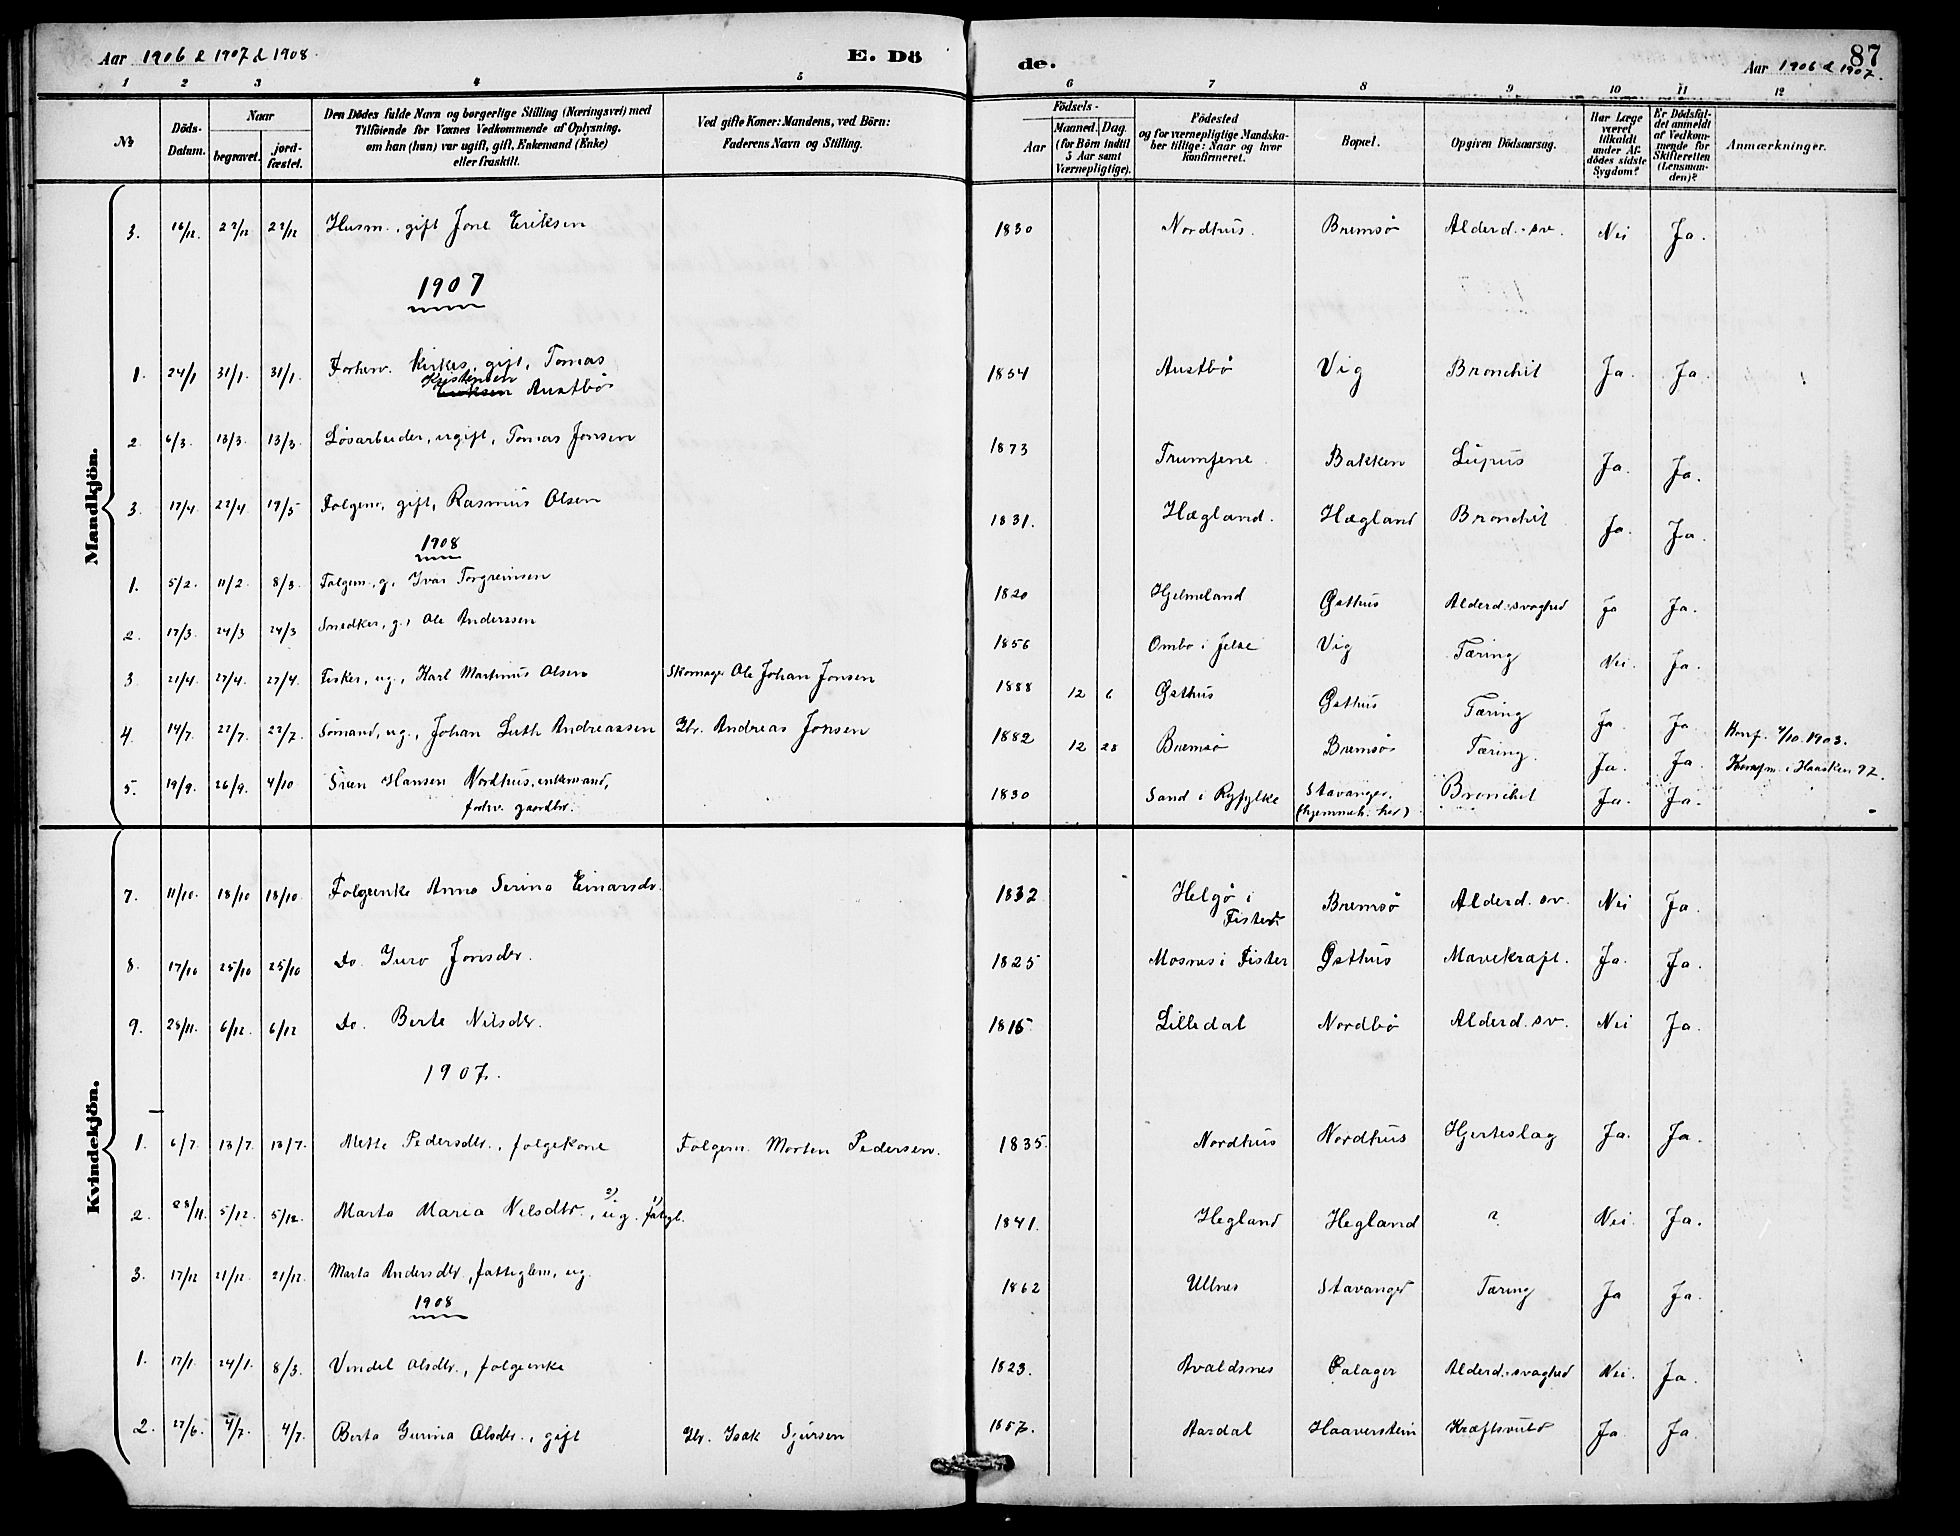 Aar 1906 & 1907 & 1908
E. Dö
de.
87
Aar 1906 & 1907.
1 2 3 4 5 6 7 8 9 10 11 12
№ Döds-Datum. Naar begravet. jordfæstet.
Den Dödes fulde Navn og borgerlige Stilling (Næringsvei) med
Tilföiende for Voxnes Vedkommende af Oplysning,
om han (hun) var ugift, gift, Enkemand (Enke)
eller fraskilt.
Ved gifte Koner: Mandens, ved Börn:
Faderens Navn og Stilling.
Födsels-
Aar Maaned. Dag
(for Börn indtil
5 Aar samt
Værnepligtige).
Födested
og for værnepligtige Mandska-
ber tillige: Naar og hvor
konfirmeret.
Bopæl.
Opgiven Dödsaarsag.
Har Læge
været
tilkaldt
under Af-
dödes sidste
Sygdom?
Er Dödsfal-
det anmeldt
af Vedkom-
mende for
Skifteretten
(Lensman-
den)?
Anmærkninger.
Mandkjön.
3. 16/12. 22/12 22/12 Husm., gift Jone Eriksen 1830 Nordhus. Bremsø Alderd.sv. Nei Ja.
1907
1. 24/1 31/1. 31/1. Forhenv. kirkes, gift, Tomas
Kristensen
Eriksen Austbø 1854 Austbø Vig Bronchit Ja. Ja.
2. 6/3. 13/3. 13/3. Løsarbeider, ugift, Tomas Jonsen 1873 Trumjene Bakken Lupus Ja. Ja.
3. 17/4. 22/4. 19/5 Folgem, gift, Rasmus Olsen 1831. Hægland. Hægland Bronchit Ja. Ja.
1908
1. 5/2. 11/2. 8/3. Folgem., g., Ivar Torgreimsen 1820 Hjelmeland Østhus Alderd.svaghed Ja Ja.
2. 17/3. 24/3 24/3 Snedker, g., Ole Anderssen 1856 Ombo i Jelse Vig Tæring Nei. Ja.
3. 21/4. 27/4. 27/4. Fisker, ug., Karl Martinus Olsen Skomager Ole Johan Jonsen 1888 12 6 Østhus Østhus Tæring Ja. Ja.
4. 14/7. 22/7. 22/7. Sømand, ug., Johan Luth Andreassen Gbr. Andreas Jonsen 1882 12 28 Bremsø Bremsø Tæring. Ja. Ja. Konf. 4/10.1903.
5. 19/9. 26/9. 4/10 Sven Hansen Nordhus, enkemand,
forhv. gaardbr. 1830 Sand i Ryfylke Stavanger,
(hjemmeh. her) Bronchit Ja. Ja.
Kvindekjön.
7. 11/10. 18/10 18/10. Folgeenke Anna Serina Einarsdr. 1832 Helgø i
Fister Bremsø Alderd.sv. Nei Ja.
8. 17/10 25/10 25/10 Do. Guro Jonsdtr. 1825 Mosnes i Fister Østhus Mavekræft. Ja. Ja.
9. 28/11. 6/12. 6/12 Do. Berte Nilsdtr. 1815 Lilledal Nordbø Alderd.sv. Nei Ja.
1907.
1. 6/7. 13/7. 13/7. Mette Pedersdtr., folgekone Folgem. Morten Pedersen. 1835. Nordhus Nordhus Hjerteslag Ja. Ja.
2. 28/11. 5/12. 5/12. Marta Maria Nilsdtr., 2) ug. 1) fatgl. 1841. Hegland Hegland ? Nei. Ja.
3. 17/12 21/12. 21/12. Marta Andersdtr., fattiglem, ug. 1862 Ullnes Stavanger Tæring Ja Ja.
1908
1. 17/1. 24/1. 8/3. Vendel Olsdtr., folgeenke 1823. Avaldsnes Palager Alderd.svaghed Nei. Ja.
2. 27/6. 4/7. 4/7. Berta Gurina Olsdtr., gift Gbr. Isak Sjursen 1857. Aardal Haaverstein Kræftsvulst Ja Ja.